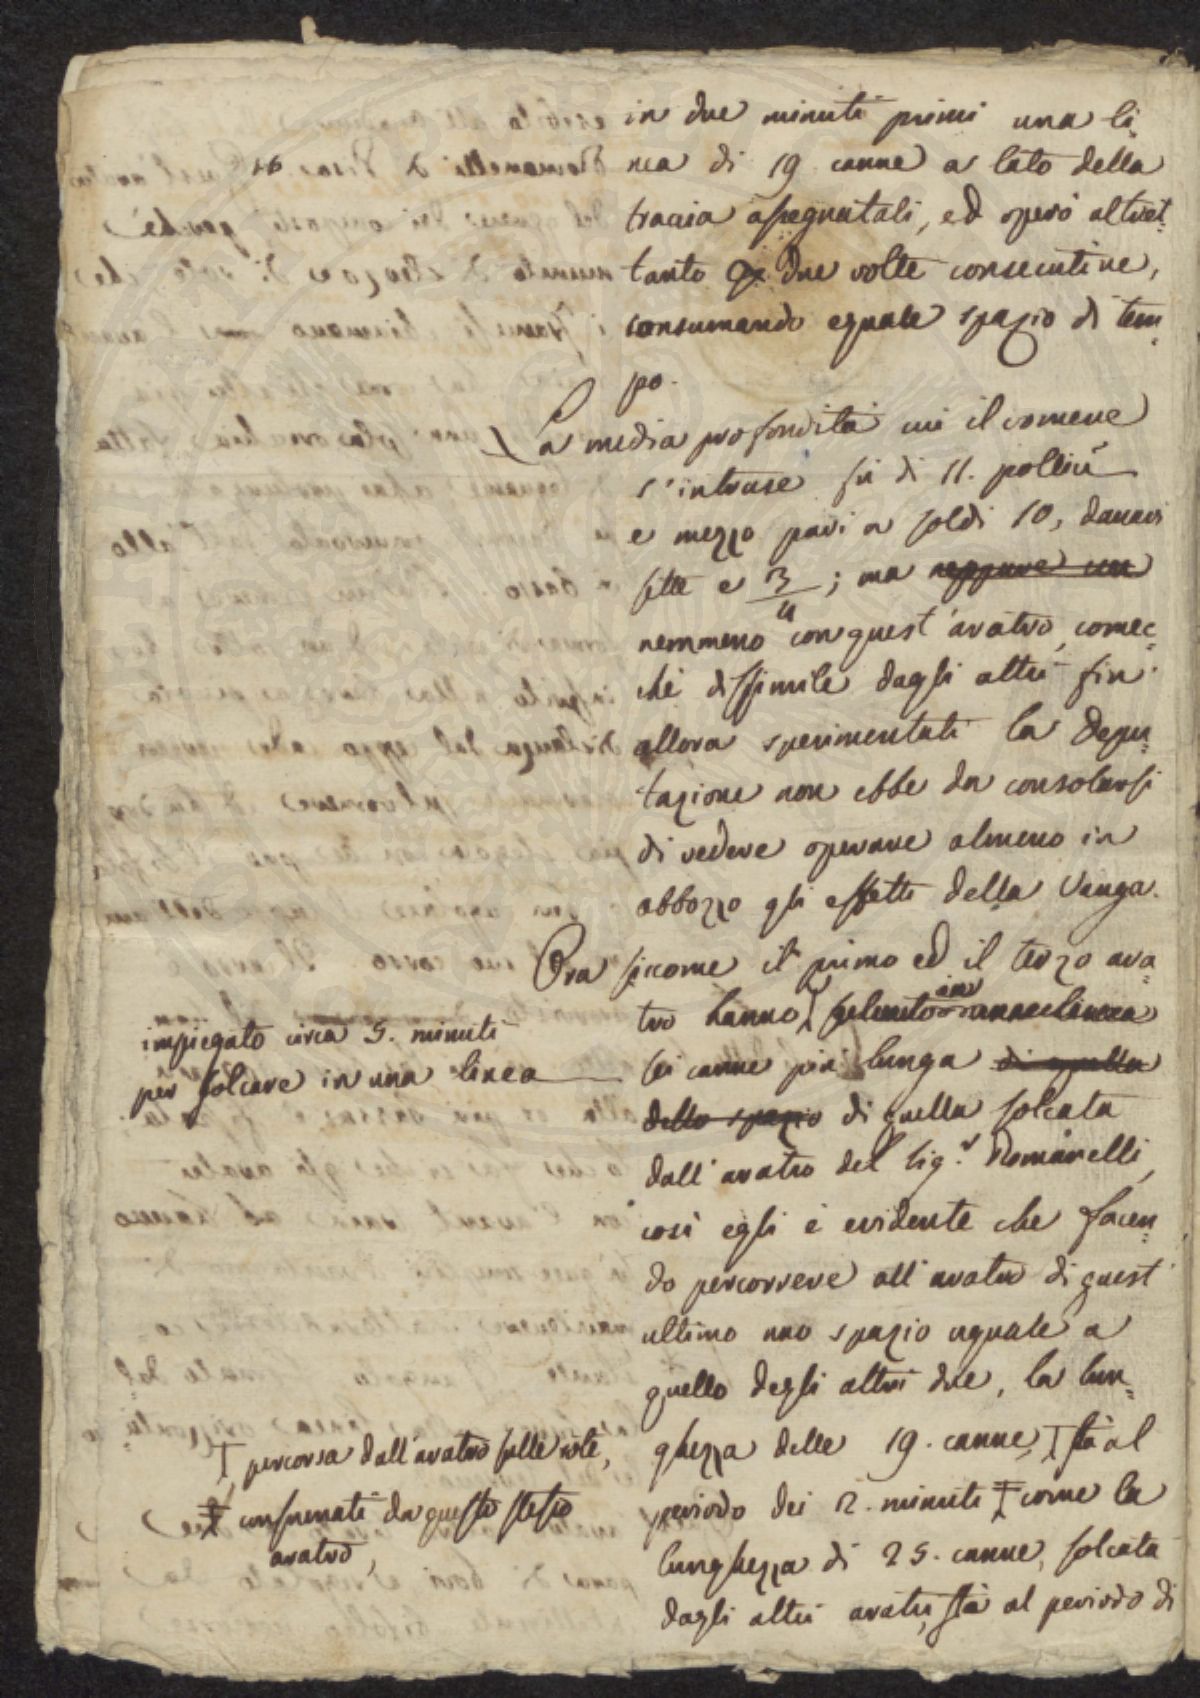 in due minuti primi una li-
nea di 19 canne a lato della
traccia assegnatali, ed operò altret-
tanto due volte consecutive,
consumando eguale spazio di tem-
po.
La media profondità cui il vomere
s'intruse fu di 11. pollici
e mezzo pari a soldi 10, danari
sette e 3/4; ma neppure con
nemmeno con quest'aratro, comec-
chè dissimile dagli altri fin
allora sperimentati la Depu-
tazione non ebbe da consolarsi
di vedere operare almeno in
abbozzo gli effetti della Vanga.
Ora siccome il primo ed il terzo ara-
tro hanno
impiegato circa 5. minuti
per solcare in una linea
sei canne più lunga di quella
dello spazio di quella solcata
dall'aratro del Sig.r Romanelli,
così egli è evidente che facen-
do percorrere all'aratro di quest'
ultimo uno spazio uguale a
quello degli altri due, la lun-
ghezza delle 19. canne, sta al
percorsa dall'aratro sulle ruote,
periodo dei 2. minuti come la
consumati da questo stesso
aratro,
lunghezza di 25. canne, solcata
dagli altri aratri, sta al periodo di